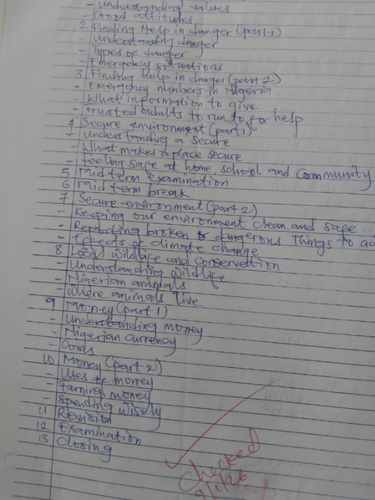 - Understanding values
- Good attitudes
2 Finding Help in danger (part 1)
- Understanding danger
- Types of danger
- Emergency situations
3 Finding help in danger (part 2)
- Emergency numbers in Nigeria
- What information to give
- Trusted adults to run to for help
4 Secure environment (part 1)
- Understanding a secure
- What makes a place secure
- Feeling safe at home, school and community
5 Mid term Examination
6 Mid term break
7 Secure environment (part 2)
- Keeping our environment clean and safe
- Reporting broken or dangerous things to
- Effects of climate change
8 Local wildlife and conservation
- Understanding wildlife
- Nigerian animals
- Where animals live
9 Money (part 1)
- Understanding money
- Nigerian currency
- Goods
10 Money (part 2)
- Uses of money
- Earning money
- Spending wisely
11 Revision
12 Examination
13 Closing
Checked
9/1/26